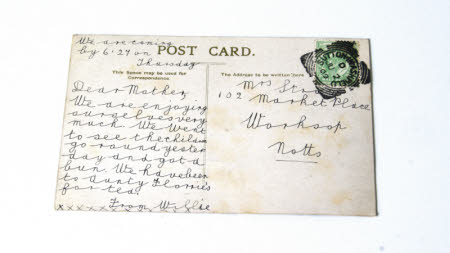 We are coming
by 6.27 on
Thursday
POST CARD.
This Space may be used for
Correspondence.
The Address to be written here
Dear Mother,
We are enjoying
ourselves very
much. We went
to see the
go round yester
day and got a
bun. We have been
to Aunty Florries
for tea.
From Willie
x x x x x x x x
Mrs
102 Market Place
Worksop
Notts